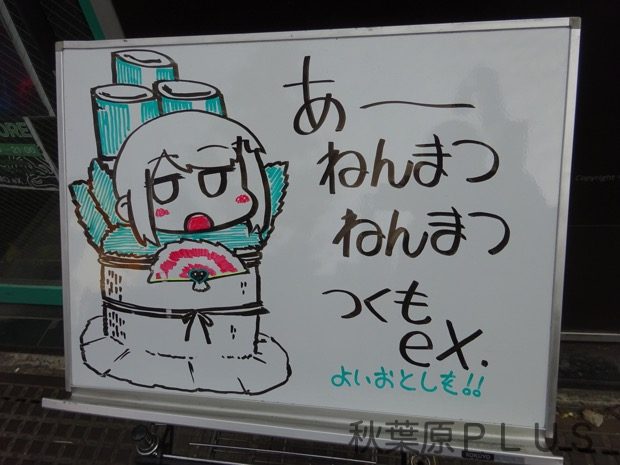 あー
ねんまつ
ねんまつ
つくも
eX.
よいおとしを!!
KOKUYO
秋葉原PLUS